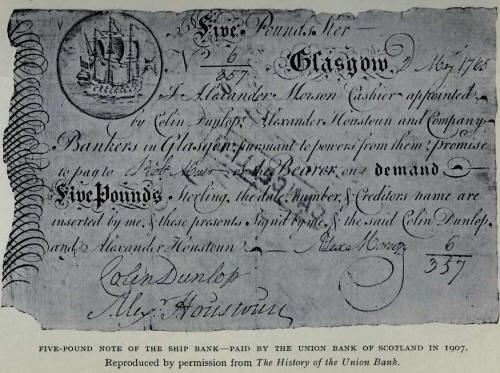 Five Pounds Ster
No 6
357
Glasgow 2 May 1765
I Alexander Morson Cashier appointed
by Colin Dunlop, Alexander Houstoun and Company
Bankers in Glasgow pursuant to powers from them; promise
to pay to or the Bearer, on demand
Five Pounds Sterling, the date, Number, & Creditors name are
inserted by me, & these presents Signed by me, & the said Colin Dunlop
and Alexander Houstoun
Alex Morson 6
337
Colin Dunlop
Alexr Houstoun
FIVE-POUND NOTE OF THE SHIP BANK—PAID BY THE UNION BANK OF SCOTLAND IN 1907.
Reproduced by permission from The History of the Union Bank.